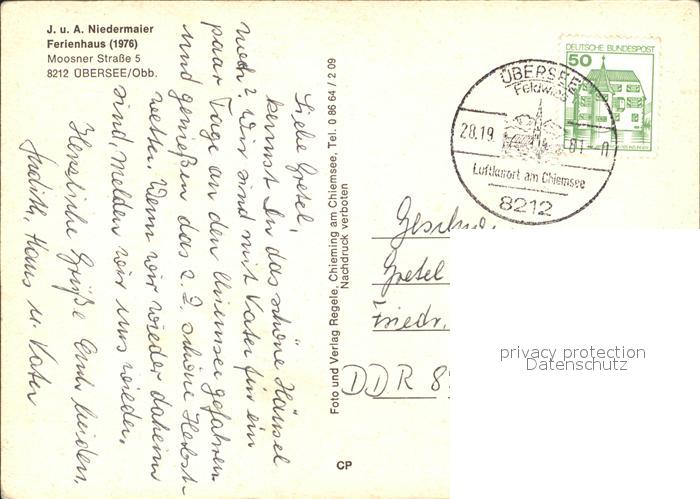 J. u. A. Niedermaier
Ferienhaus (1976)
Moosner Straße 5
8212 ÜBERSEE/Obb.
Liebe Gretel,
kennst Du das schöne Häusel
noch? Wir sind mit Vater für ein
paar Tage an den Chiemsee gefahren
und genießen das z. Z. schöne Herbst-
wetter. Wenn wir wieder daheim
sind, melden wir uns wieder.
Herzliche Grüße Euch beiden,
Hans u. Vater
Foto und Verlag Regele, Chieming am Chiemsee, Tel. 0 86 64 / 2 09
Nachdruck verboten
CP
DEUTSCHE BUNDESPOST
50
ÜBERSEE
Feldwies
28.19
81-11
Luftkurort am Chiemsee
8212
Geschw.
Gretel
Friedr.
DDR 8
privacy protection
Datenschutz